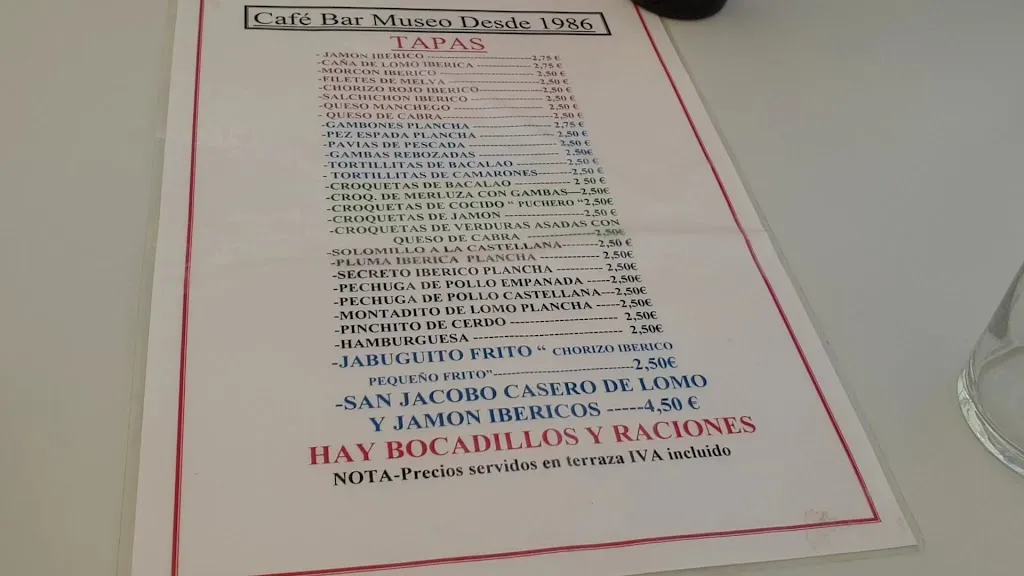 Café Bar Museo Desde 1986
TAPAS
-JAMON IBERICO ----------------------------2,75 €
-CAÑA DE LOMO IBERICA ---------------2,75 €
-MORCON IBERICO ------------------------- 2,50 €
-FILETES DE MELVA -----------------------2,50 €
-CHORIZO ROJO IBERICO-----------------2,50€
-SALCHICHON IBERICO -------------------- 2,50 €
-QUESO MANCHEGO ------------------------ 2,50 €
- QUESO DE CABRA---------------------------2,50 €
-GAMBONES PLANCHA --------------------2,75 €
-PEZ ESPADA PLANCHA ------------------- 2,50 €
-PAVIAS DE PESCADA ---------------------- 2,50 €
-GAMBAS REBOZADAS --------------------- 2,50€
-TORTILLITAS DE BACALAO -------------2,50 €
- TORTILLITAS DE CAMARONES--------2,50 €
-CROQUETAS DE BACALAO -------------- 2 50 €
-CROQ. DE MERLUZA CON GAMBAS---2,50€
-CROQUETAS DE COCIDO “ PUCHERO “2,50€
-CROQUETAS DE JAMON -------------------2,50 €
-CROQUETAS DE VERDURAS ASADAS CON
QUESO DE CABRA -----------------2,50€
-SOLOMILLO A LA CASTELLANA-------2,50 €
-PLUMA IBERICA PLANCHA ------------- 2,50€
-SECRETO IBERICO PLANCHA ----------- 2,50€
-PECHUGA DE POLLO EMPANADA -----2,50€
-PECHUGA DE POLLO CASTELLANA---2,50€
-MONTADITO DE LOMO PLANCHA -----2,50€
-PINCHITO DE CERDO --------------------- 2,50€
-HAMBURGUESA ----------------------------- 2,50€
-JABUGUITO FRITO “ CHORIZO IBERICO
PEQUEÑO FRITO”---------------------------2,50€
-SAN JACOBO CASERO DE LOMO
Y JAMON IBERICOS -----4,50 €
HAY BOCADILLOS Y RACIONES
NOTA-Precios servidos en terraza IVA incluido